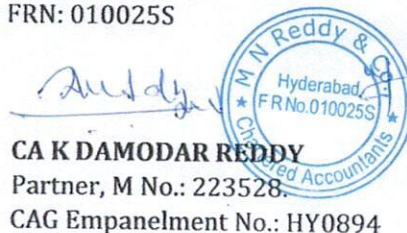 FRN: 010025S
M N Reddy & Co.
Hyderabad.
FRNo.010025S
★ Chartered Accountants ★
CA K DAMODAR REDDY
Partner, M No.: 223528.
CAG Empanelment No.: HY0894